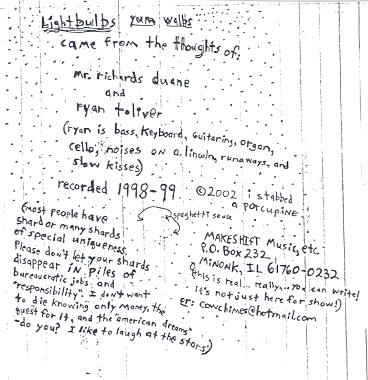 Lightbulbs yum walbs
came from the thoughts of:
mr. richards duane
and
ryan toliver
(ryan is bass, keyboard, guitarings, organ,
cello, noises on a. lincoln, runaways, and
slow kisses)
recorded 1998-99 ©2002 i stabbed
a porcupine
spaghetti sauce
(most people have
shard or many shards
of special uniqueness.
Please don't let your shards
disappear in piles of
bureaucratic jobs and
"responsibility". I don't want
to die knowing only money, the
quest for it, and the "american dreams"
-do you? I like to laugh at the stars)
MAKESHIFT Music, etc
P.O. Box 232
MINONK, IL 61760-0232
(this is real... really... you can write!
It's not just here for show!)
er: cowchimes@hotmail.com